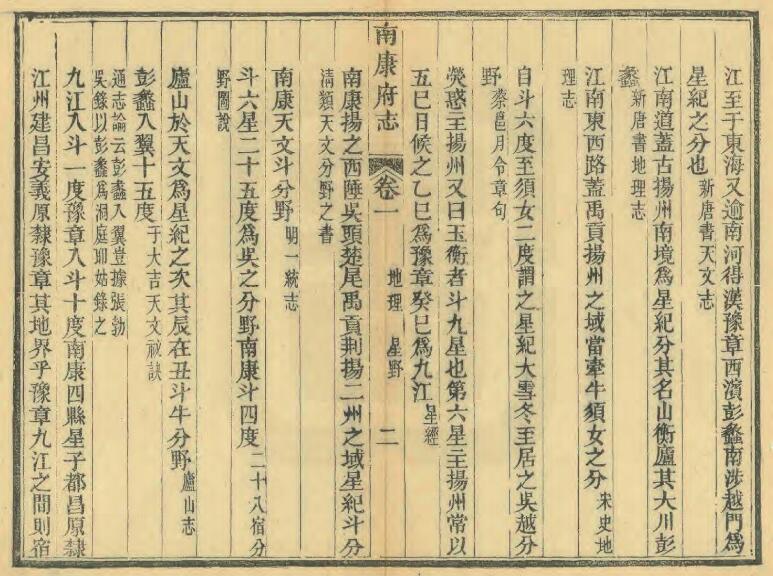 江至于東海又逾南河得漢豫章西濱彭蠡南涉越門爲
星紀之分也新唐書天文志
江南道蓋古揚州南境爲星紀分其名山衡廬其大川彭
蠡新唐書地理志
江南東西路蓋禹貢揚州之域當牽牛須女之分宋史地
理志
自斗六度至須女二度謂之星紀大雪冬至居之吳越分
野蔡邕月令章句
熒惑主揚州又曰玉衡者斗九星也第六星主揚州常以
五巳日候之乙巳爲豫章癸巳爲九江星經
南康府志 卷一 地理 星野 二
南康揚之西陲吳頭楚尾禹貢荆揚二州之域星紀斗分
淸類天文分野之書
南康天文斗分野明一統志
斗六星二十五度爲吳之分野南康斗四度二十八宿分
野圖說
廬山於天文爲星紀之次其辰在丑斗牛分野廬山志
彭蠡入翼十五度于大吉天文祕訣
通志論云彭蠡入翼豈據張勃
吳錄以彭蠡爲洞庭耶姑錄之
九江入斗一度豫章入斗十度南康四縣星子都昌原隸
江州建昌安義原隸豫章其地界乎豫章九江之間則宿